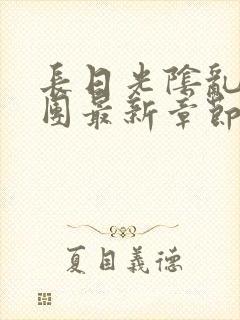 長日光陰亂
團最新章節
夏目義德